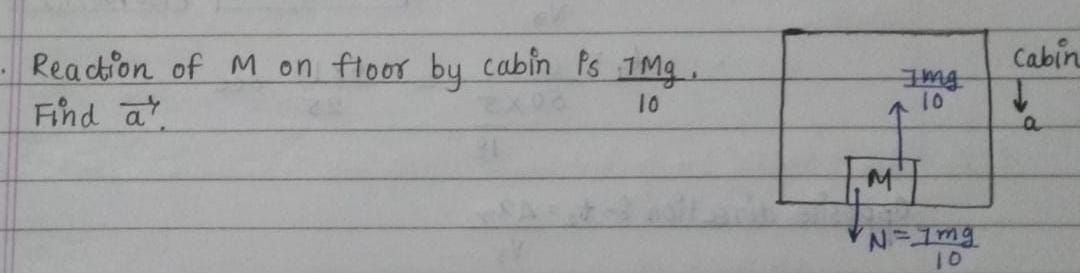 . Reaction of M on floor by cabin is 7Mg/10.
Find a⃗.
Cabin
↓
a
7mg/10
M
N = 7mg/10